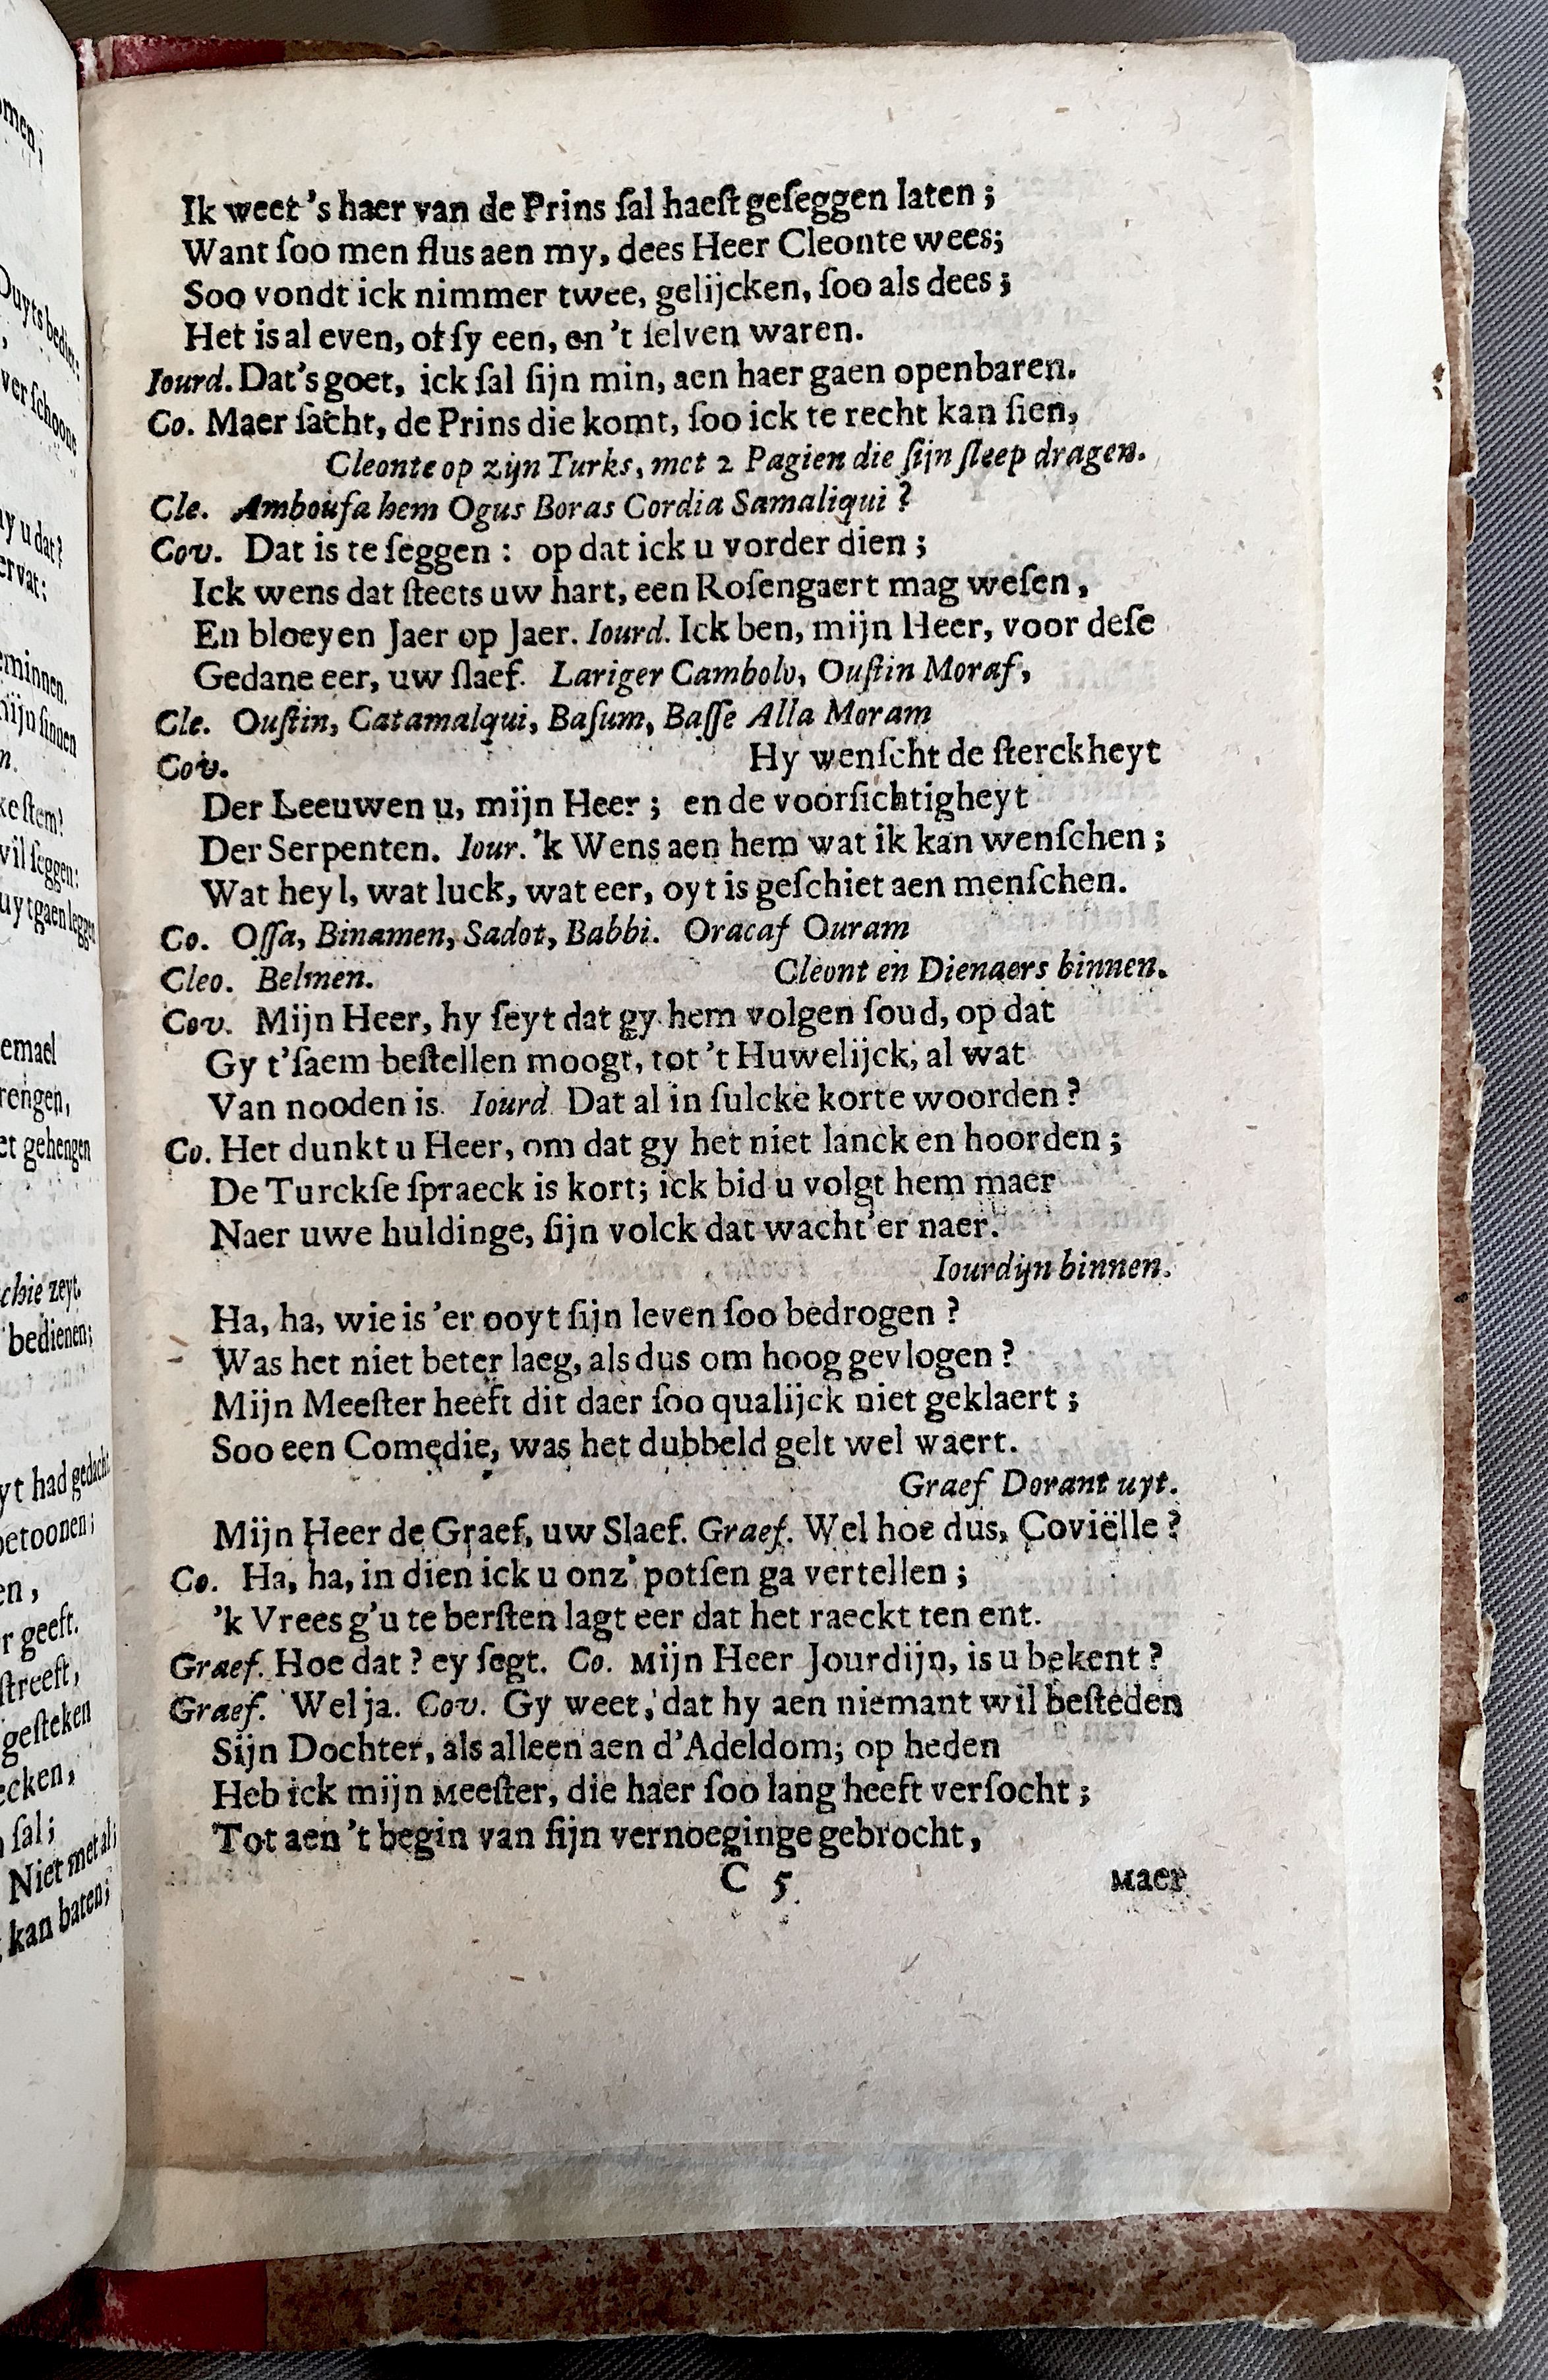 Ik weet 's haer van de Prins ſal haeſt geſeggen laten ;
Want ſoo men flus aen my, dees Heer Cleonte wees;
Soo vondt ick nimmer twee, gelijcken, ſoo als dees ;
Het is al even, of ſy een, en 't ſelven waren.
Iourd. Dat's goet, ick ſal ſijn min, aen haer gaen openbaren.
Co. Maer ſacht, de Prins die komt, ſoo ick te recht kan ſien,
Cleonte op zijn Turks, met 2 Pagien die ſijn ſleep dragen.
Cle. Amboufa hem Ogus Boras Cordia Samaliqui ?
Cov. Dat is te ſeggen : op dat ick u vorder dien ;
Ick wens dat ſteets uw hart, een Roſengaert mag weſen ,
En bloeyen Jaer op Jaer. Iourd. Ick ben, mijn Heer, voor deſe
Gedane eer, uw ſlaef. Lariger Cambolo, Ouſtin Moraf,
Cle. Ouſtin, Catamalqui, Baſum, Baſſe Alla Moram
Cov. Hy wenſcht de ſterckheyt
Der Leeuwen u, mijn Heer ; en de voorſichtigheyt
Der Serpenten. Iour. 'k Wens aen hem wat ik kan wenſchen ;
Wat heyl, wat luck, wat eer, oyt is geſchiet aen menſchen.
Co. Oſſa, Binamen, Sadot, Babbi. Oracaf Ouram
Cleo. Belmen. Cleont en Dienaers binnen.
Cov. Mijn Heer, hy ſeyt dat gy hem volgen ſoud, op dat
Gy t'ſaem beſtellen moogt, tot 't Huwelijck, al wat
Van nooden is. Iourd. Dat al in ſulcke korte woorden ?
Co. Het dunkt u Heer, om dat gy het niet lanck en hoorden ;
De Turckſe ſpraeck is kort; ick bid u volgt hem maer
Naer uwe huldinge, ſijn volck dat wacht'er naer.
Iourdijn binnen.
Ha, ha, wie is 'er ooyt ſijn leven ſoo bedrogen ?
Was het niet beter laeg, als dus om hoog gevlogen ?
Mijn Meeſter heeft dit daer ſoo qualijck niet geklaert ;
Soo een Comedie, was het dubbeld gelt wel waert.
Graef Dorant uyt.
Mijn Heer de Graef, uw Slaef. Graef. Wel hoe dus, Coviëlle ?
Co. Ha, ha, in dien ick u onz' potſen ga vertellen ;
'k Vrees g'u te berſten lagt eer dat het raeckt ten ent.
Graef. Hoe dat ? ey ſegt. Co. Mijn Heer Jourdijn, is u bekent ?
Graef. Wel ja. Cov. Gy weet, dat hy aen niemant wil beſteden
Sijn Dochter, als alleen aen d'Adeldom; op heden
Heb ick mijn Meeſter, die haer ſoo lang heeft verſocht ;
Tot aen 't begin van ſijn vernoeginge gebrocht,
C 5 Maer